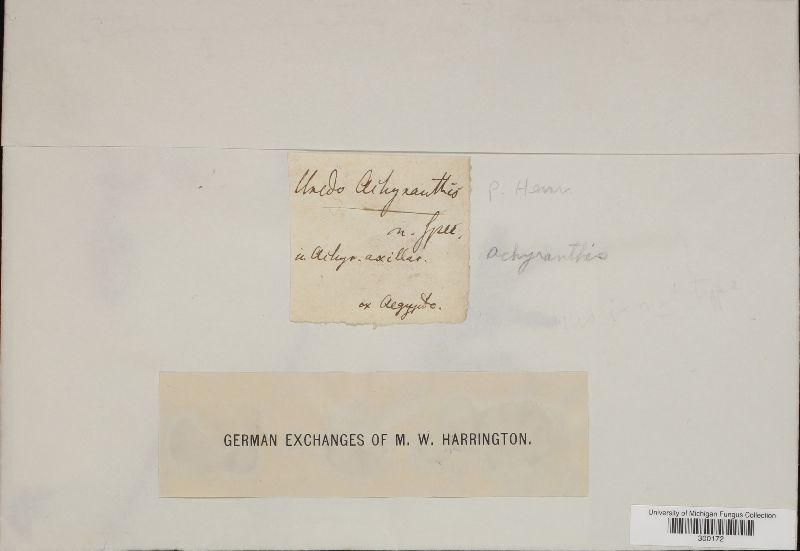 Uredo Achyranthis
n. Spec.
in Achyr. axillar.
ex Aegypto.
P. Henn
achyranthis
is not type
GERMAN EXCHANGES OF M. W. HARRINGTON.
University of Michigan Fungus Collection
300172